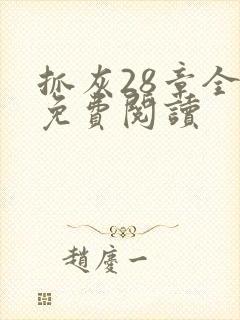 抓灰28章全
免費閱讀
趙慶一